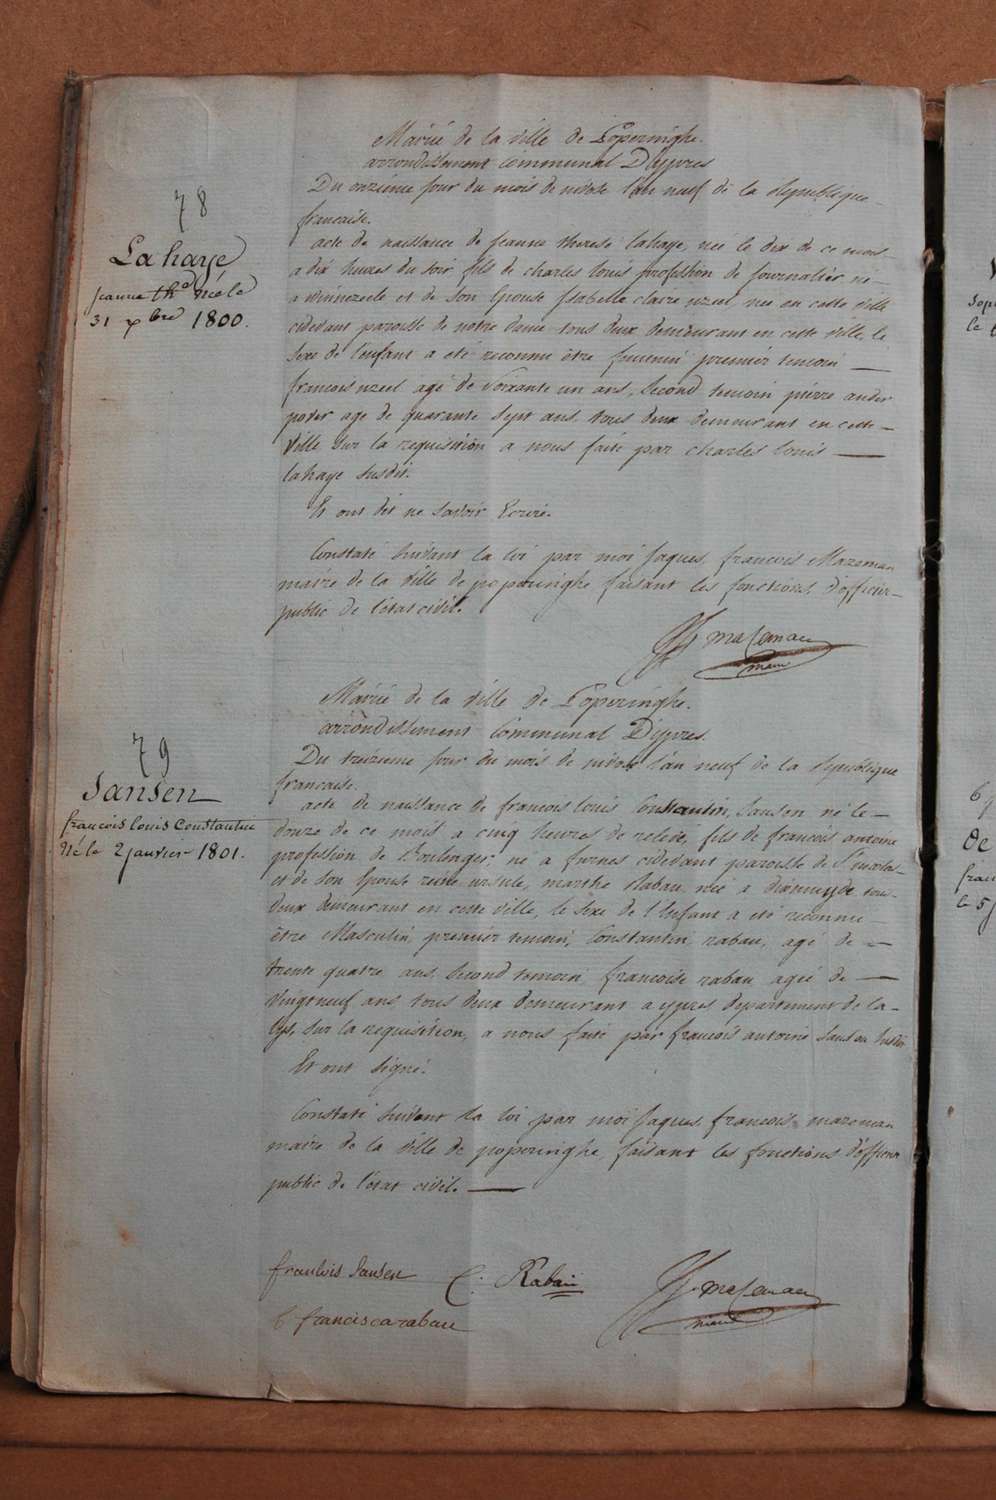 78
Lahaye
jeanne th. née le
31 xbre 1800.
Mairie de la ville de Poperinghe.
arrondissement Communal D'Ypres
Du onzieme jour du mois de nivose l'an neuf de la Republique
francaise.
acte de naissance de jeanne therese lahaye, née le dix de ce mois
a dix heures du soir, fils de charles louis profession de journalier né
a winnezeele et de son Epouse Isabelle claire uzeel née en cette ville
cidevant paroisse de notre dame tous deux demeurant en cette ville, le
sexe de l'enfant a été reconnu être feminin premier temoin
francois uzeel agé de soixante un ans, second temoin pierre ander
poder age de quarante sept ans, tous deux demeurant en cette
ville sur la requisition a nous faite par charles louis
lahaye susdit.
Et ont dit ne savoir Ecrire.
Constaté suivant la loi par moi jaques francois Mazeman
maire de la ville de poperinghe faisant les fonctions d'officier
public de l'état civil.
Mazeman
maire
79
Jansen
francois louis Constantin
Né le 2 janvier 1801.
Mairie de la ville de Poperinghe.
arrondissement Communal D'ypres.
Du treizieme jour du mois de nivose l'an neuf de la Republique
francaise.
acte de naissance de francois louis Constantin, Jansen né le
douze de ce mois a cinq heures de relevé, fils de francois antoine
profession de Boulenger, né a furnes cidevant paroisse de St. nicolas
et de son Epouse reine ursule, marthe Rabau née a dixmuyde tou
deux demeurant en cette ville, le sexe de l'enfant a été reconnu
être Masculin, premier temoin, Constantin, rabau, agé de
trente quatre ans, second temoin francoise rabau agée de
vingtneuf ans tous deux demeurant a ypres departement de la
lys, sur la requisition, a nous faite par francois antoine Jansen susdit
Et ont signé.
Constaté suivant la loi par moi jaques francois mazeman
maire de la ville de poperinghe, faisant les fonctions d'officier
public de l'état civil.
francois Jansen C. Rabau Mazeman
francisca rabau maire